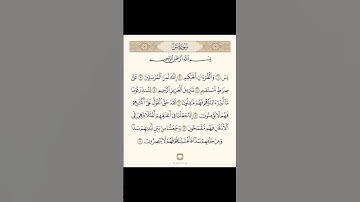 سورة يس
بسم الله الرحمن الرحيم
يسٓ ۝ وَٱلْقُرْءَانِ ٱلْحَكِيمِ ۝ إِنَّكَ لَمِنَ ٱلْمُرْسَلِينَ ۝ عَلَىٰ
صِرَٰطٍ مُّسْتَقِيمٍ ۝ تَنزِيلَ ٱلْعَزِيزِ ٱلرَّحِيمِ ۝ لِتُنذِرَ قَوْمًا
مَّآ أُنذِرَ ءَابَآؤُهُمْ فَهُمْ غَٰفِلُونَ ۝ لَقَدْ حَقَّ ٱلْقَوْلُ عَلَىٰٓ أَكْثَرِهِمْ
فَهُمْ لَا يُؤْمِنُونَ ۝ إِنَّا جَعَلْنَا فِىٓ أَعْنَٰقِهِمْ أَغْلَٰلًا فَهِىَ إِلَى
ٱلْأَذْقَانِ فَهُم مُّقْمَحُونَ ۝ وَجَعَلْنَا مِنۢ بَيْنِ أَيْدِيهِمْ سَدًّا
وَمِنْ خَلْفِهِمْ سَدًّا فَأَغْشَيْنَٰهُمْ فَهُمْ لَا يُبْصِرُونَ ۝